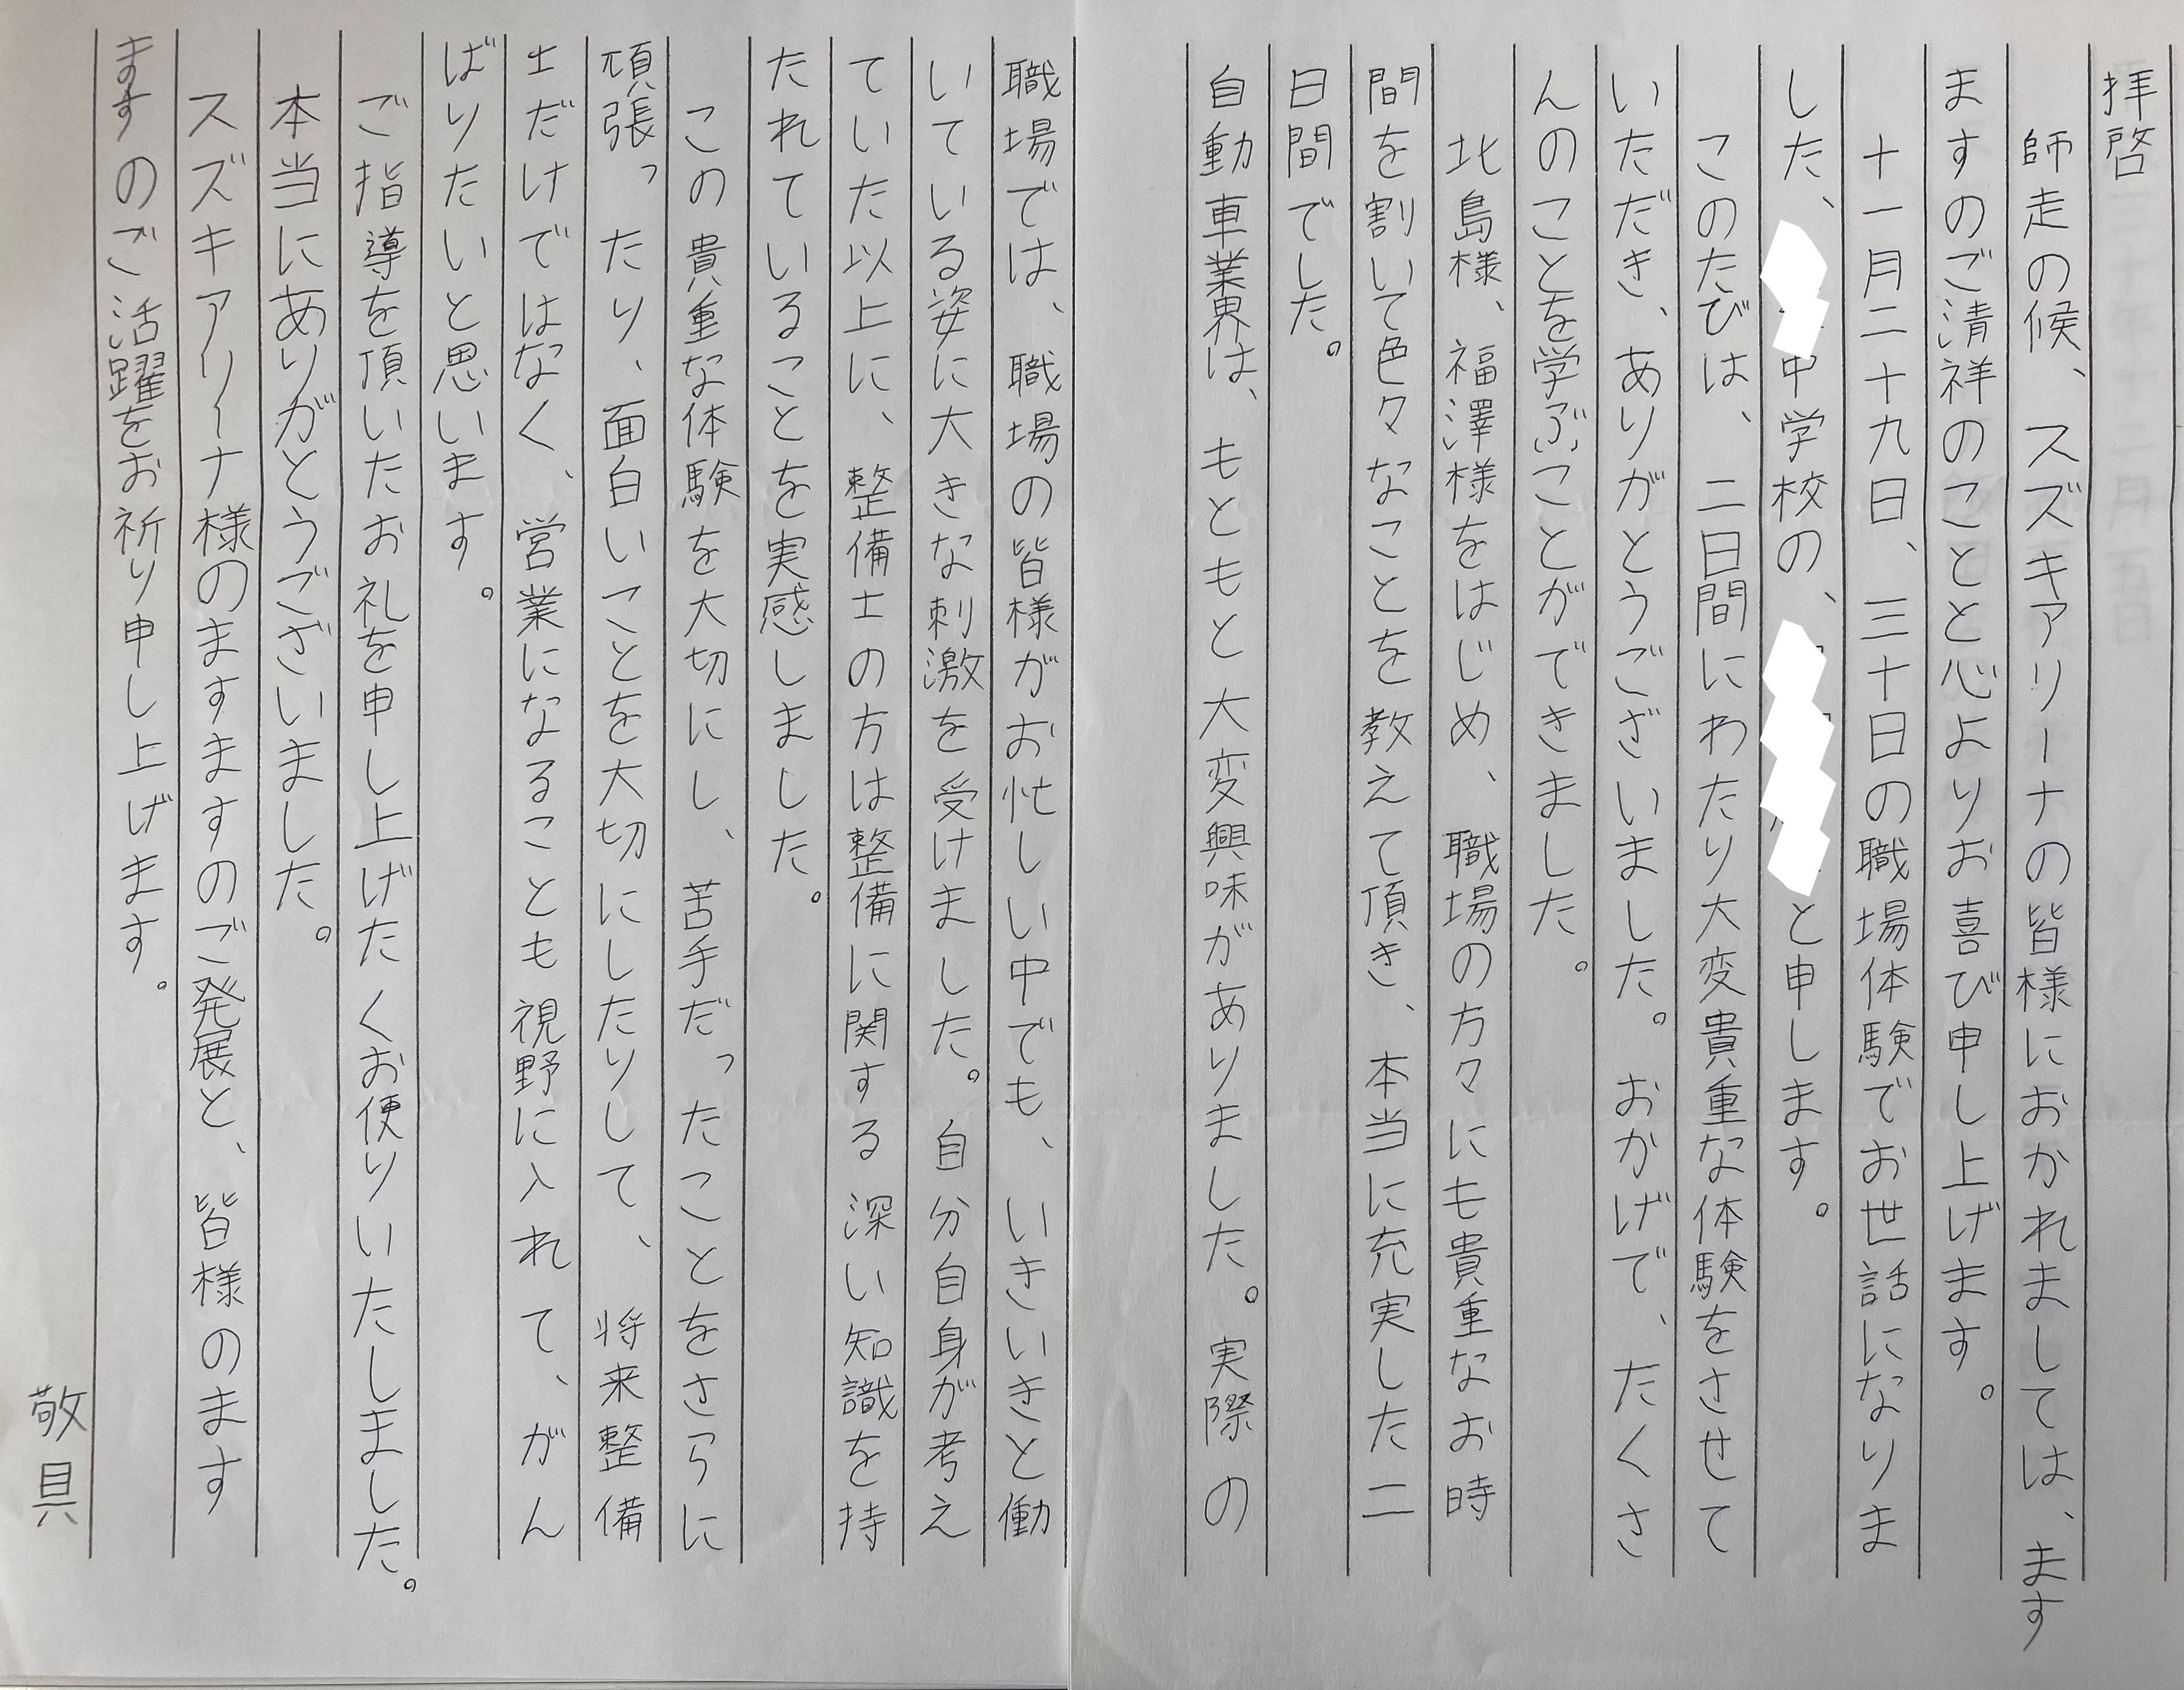 拝啓
師走の候、スズキアリーナの皆様におかれましては、ます
ますのご清祥のことと心よりお喜び申し上げます。
十一月二十九日、三十日の職場体験でお世話になりま
した、中学校の、と申します。
このたびは、二日間にわたり大変貴重な体験をさせて
いただき、ありがとうございました。おかげで、たくさ
んのことを学ぶことができました。
北島様、福澤様をはじめ、職場の方々にも貴重なお時
間を割いて色々なことを教えて頂き、本当に充実した二
日間でした。
自動車業界は、もともと大変興味がありました。実際の
職場では、職場の皆様がお忙しい中でも、いきいきと働
いている姿に大きな刺激を受けました。自分自身が考え
ていた以上に、整備士の方は整備に関する深い知識を持
たれていることを実感しました。
この貴重な体験を大切にし、苦手だったことをさらに
頑張ったり、面白いことを大切にしたりして、将来整備
士だけではなく、営業になることも視野に入れて、がん
ばりたいと思います。
ご指導を頂いたお礼を申し上げたくお便りいたしました。
本当にありがとうございました。
スズキアリーナ様のますますのご発展と、皆様のます
ますのご活躍をお祈り申し上げます。
敬具